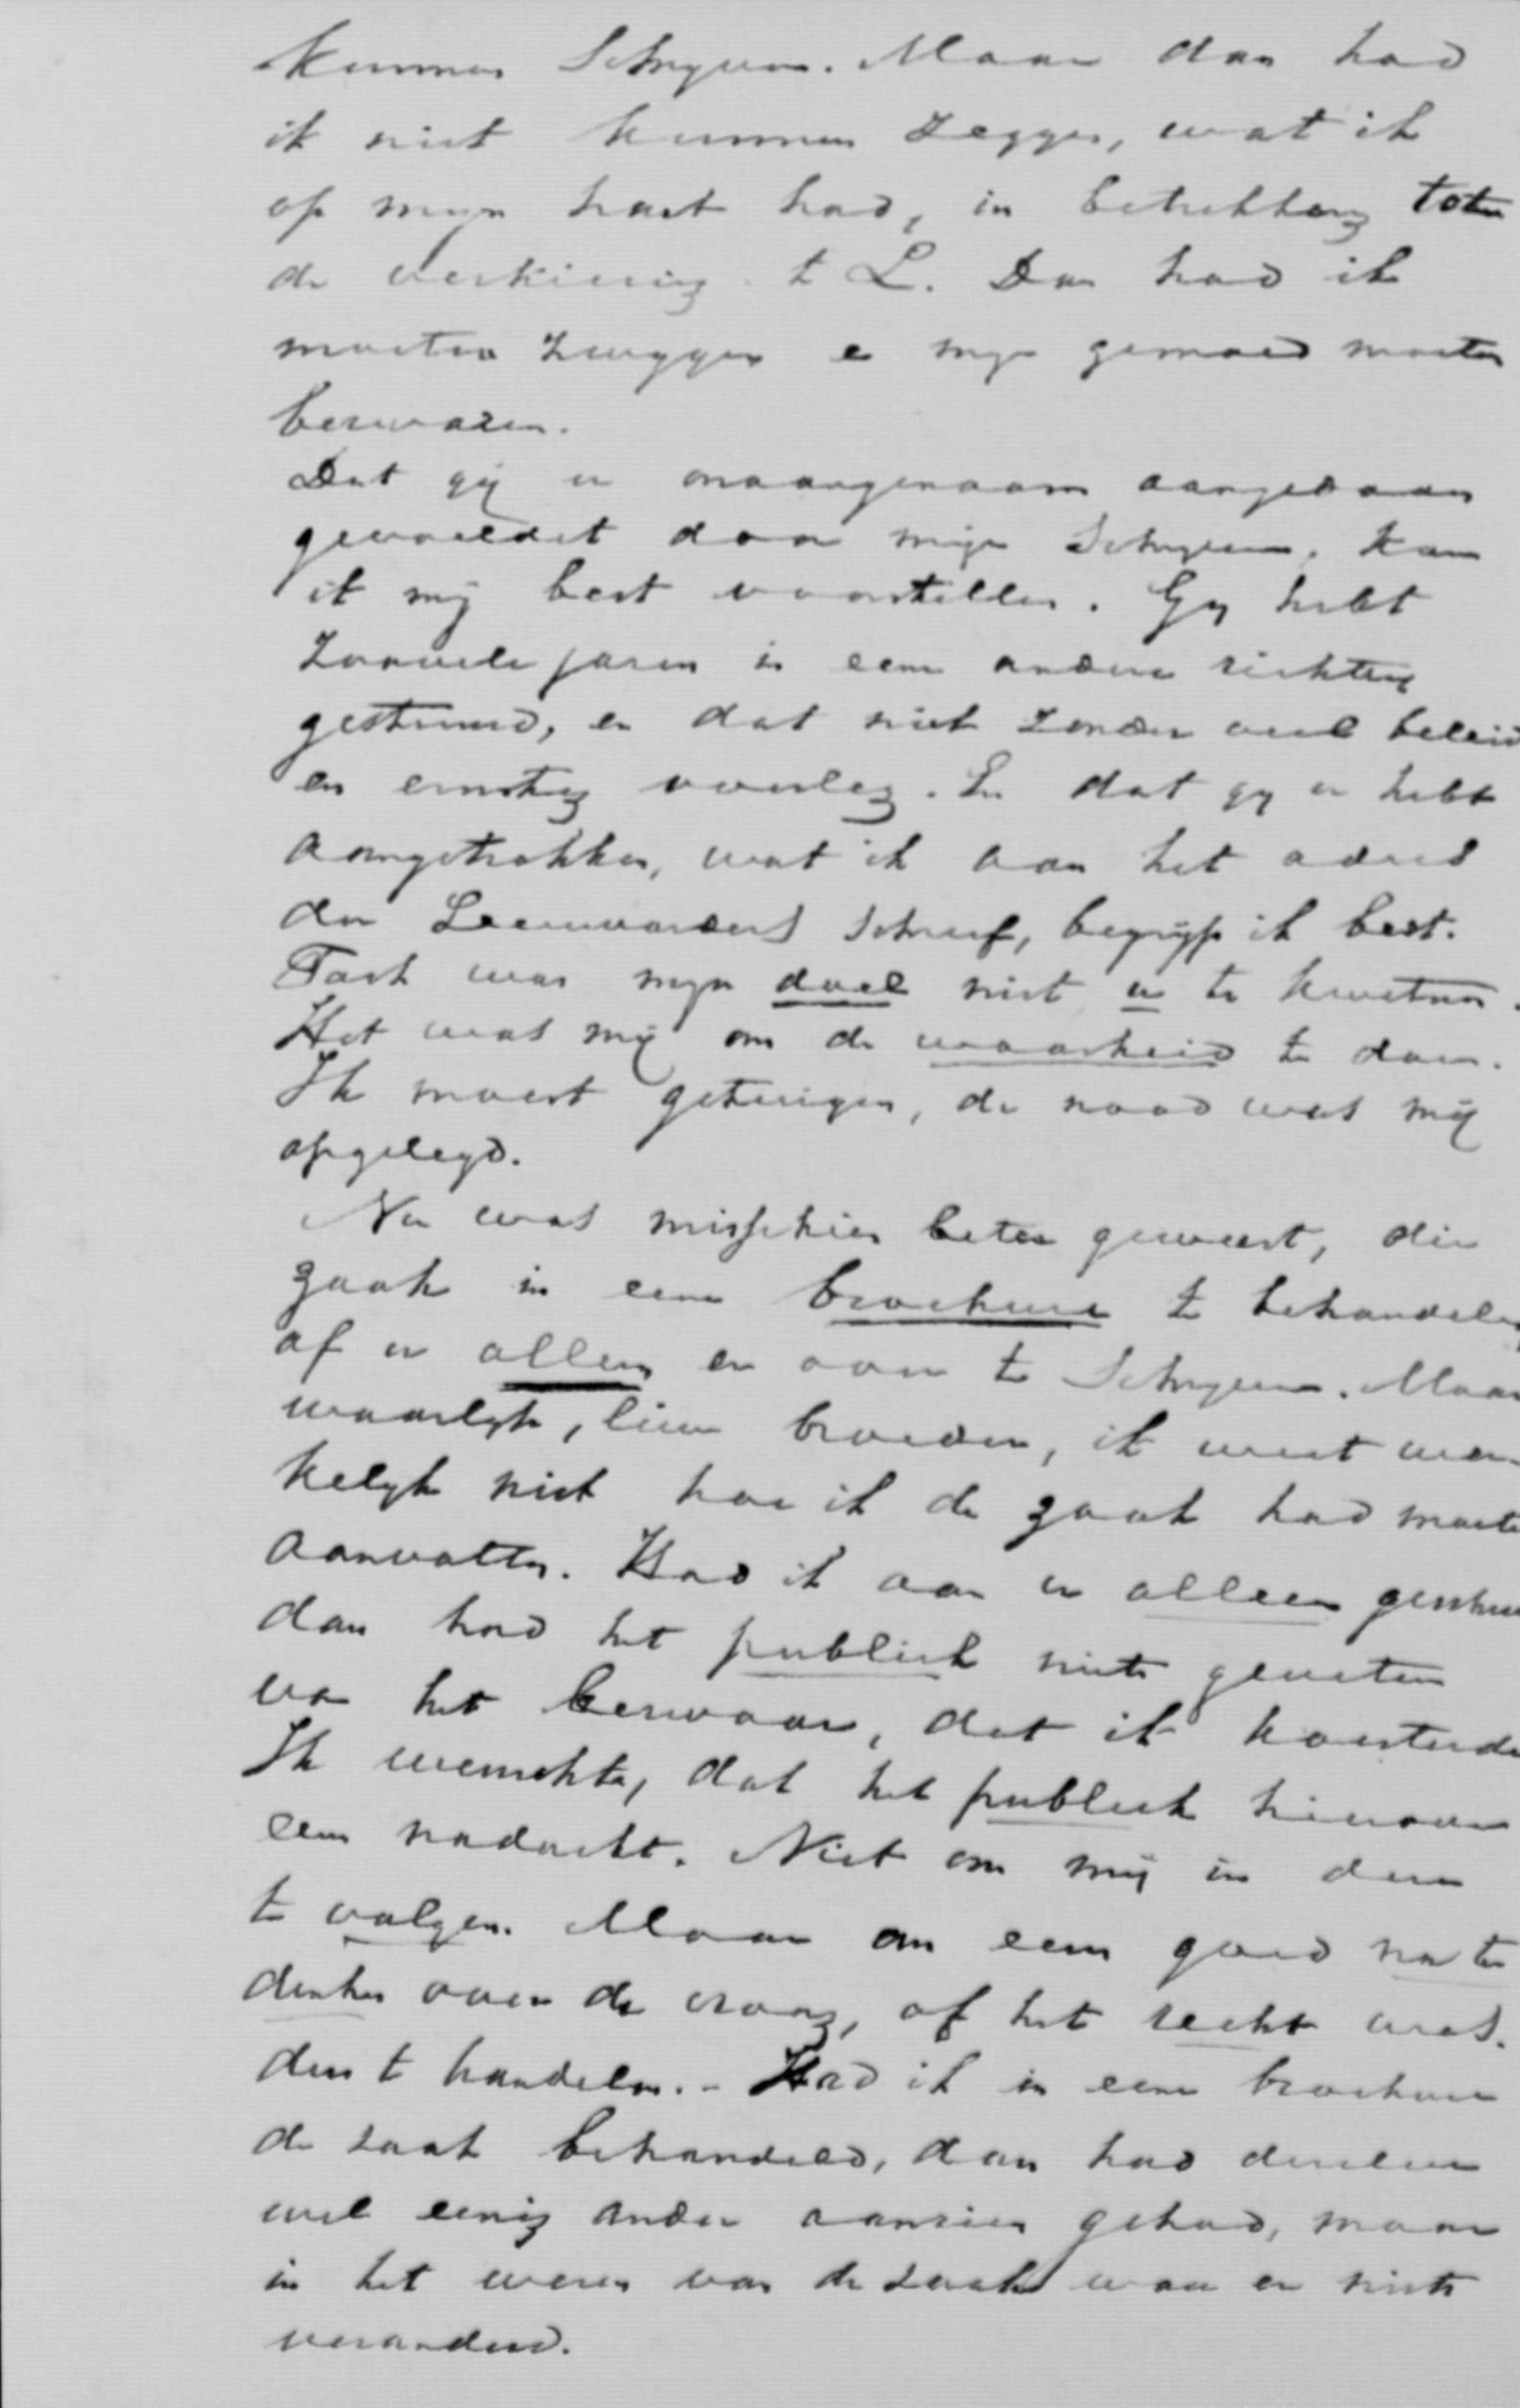 kunnen schrijven. Maar dan had
ik niet kunnen zeggen, wat ik
op mijn hart had, in betrekking tot
de verkiezing te L. Dan had ik
moeten zwijgen en mijn gemoed moeten
bezwaren.
Dat gij u onaangenaam aangedaan
gevoeldet door mijn schrijven, kan
ik mij best voorstellen. Gij hebt
zoovele jaren in eene andere richting
gestuurd, en dat niet zonder veel beleid
en ernstig overleg. En dat gij u hebt
aangetrokken, wat ik aan het adres
der Leeuwarders schreef, begrijp ik best.
Toch was mijn doel niet u te kwetsen.
Het was mij om de waarheid te doen.
Ik moest getuigen, de nood was mij
opgelegd.
Nu was misschien beter geweest, die
zaak in eene brochure te behandelen
of u alleen er over te schrijven. Maar
waarlijk, lieve broeder, ik weet wer-
kelijk niet hoe ik de zaak had moeten
aanvatten. Had ik aan u alleen geschreven
dan had het publiek niets geweten
van het bezwaar, dat ik koesterde
Ik wenschte, dat het publiek hierover
eens nadacht. Niet om mij in deze
te volgen. Maar om eens goed na te
denken over de vraag, of het recht was.
dus te handelen. - Had ik in eene brochure
de zaak behandeld, dan had dezelve
wel eenig ander aanzien gehad, maar
in het wezen van de zaak was er niets
veranderd.